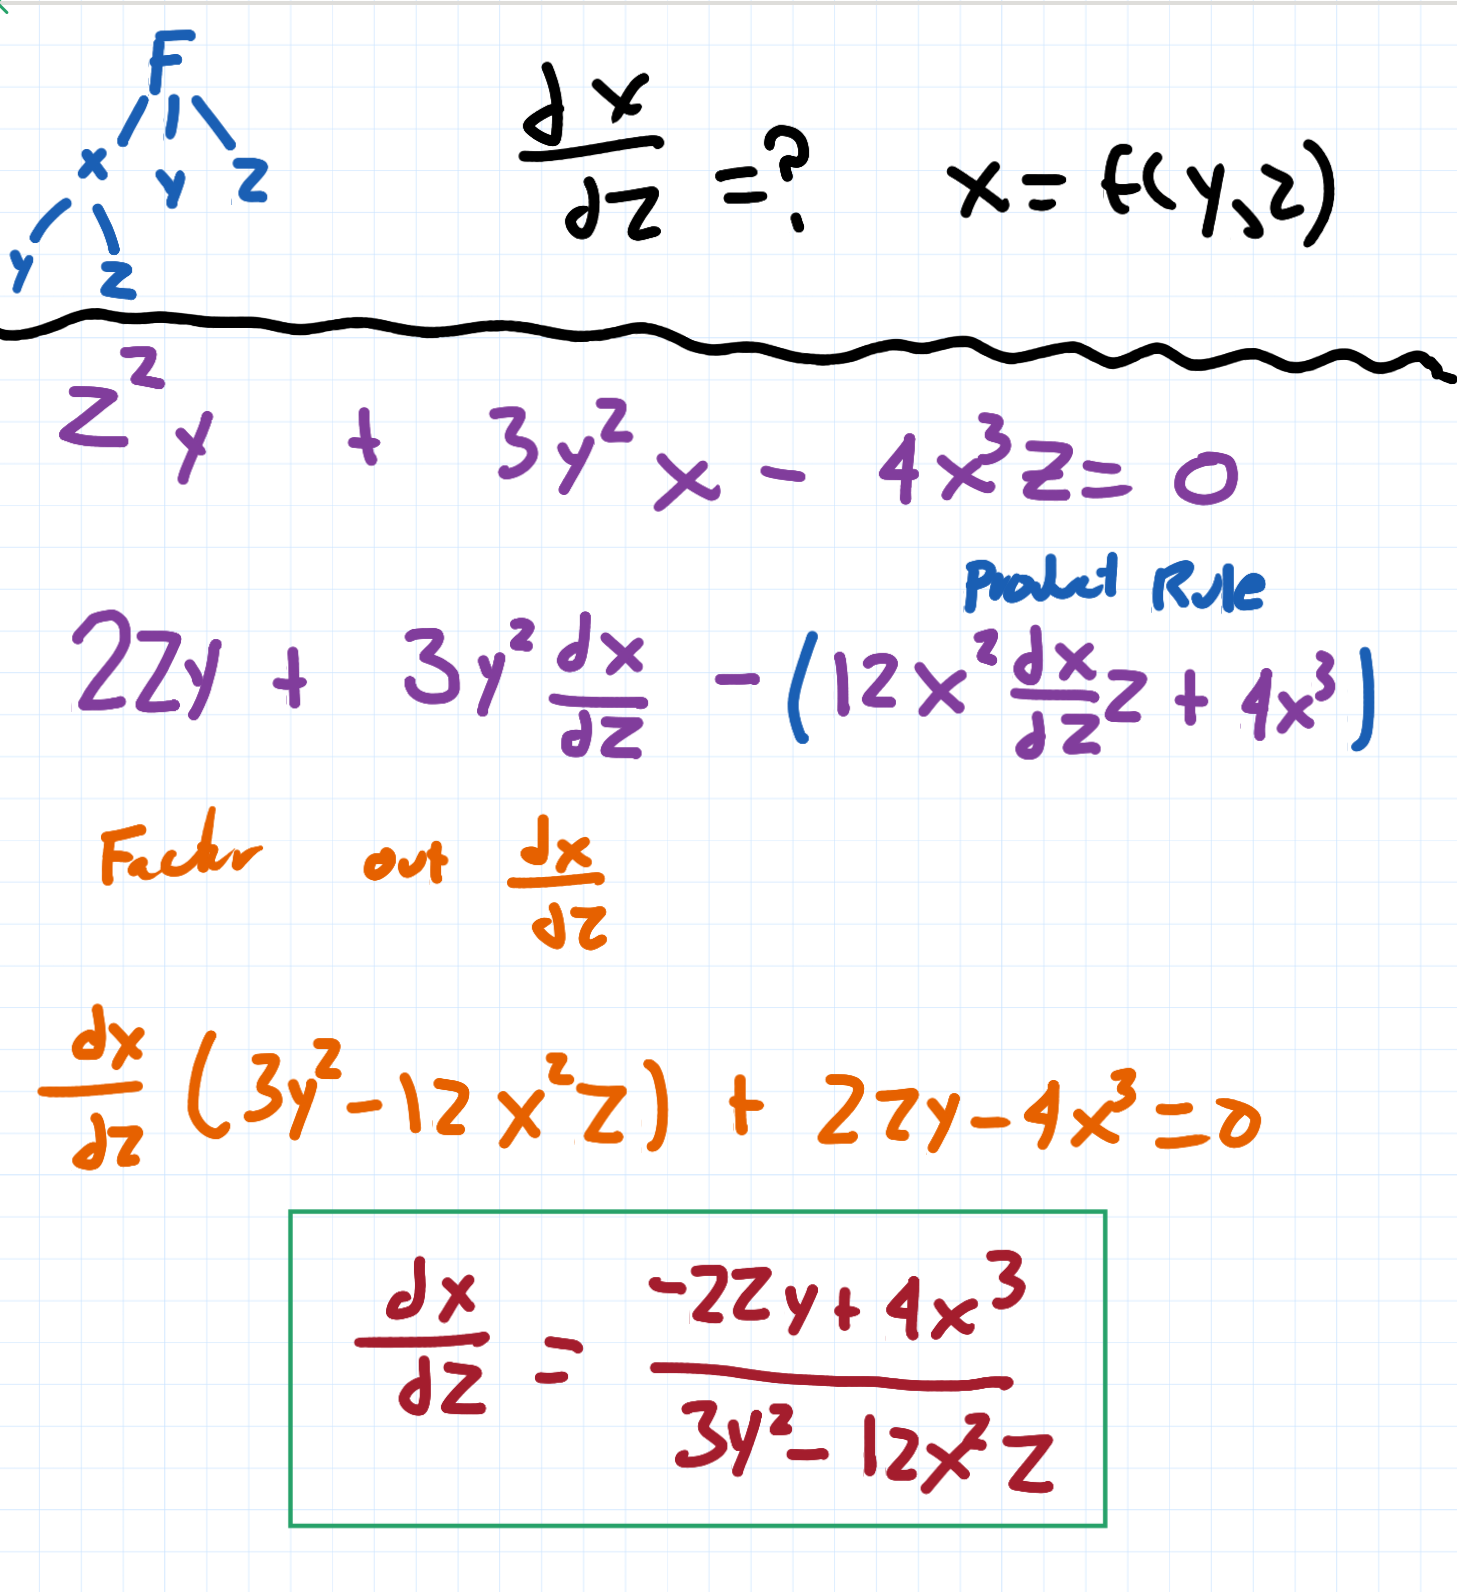 F
x y z
y z
dx/dz = ? x = f(y,z)
z²y + 3y²x - 4x³z = 0
Product Rule
2zy + 3y² dx/dz - (12x² dx/dz z + 4x³)
Factor out dx/dz
dx/dz (3y² - 12x²z) + 2zy - 4x³ = 0
dx/dz = (-2zy + 4x³)/(3y² - 12x²z)